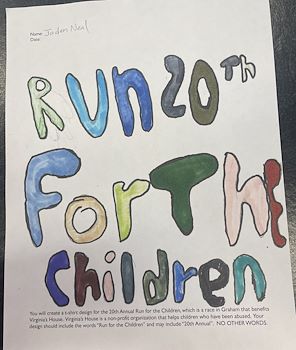 Name: Jaden Neal
Date:
Run 20Th
For The
Children
You will create a t-shirt design for the 20th Annual Run for the Children, which is a race in Graham that benefits
Virginia's House. Virginia's House is a non-profit organization that helps children who have been abused. Your
design should include the words "Run for the Children" and may include "20th Annual". NO OTHER WORDS.